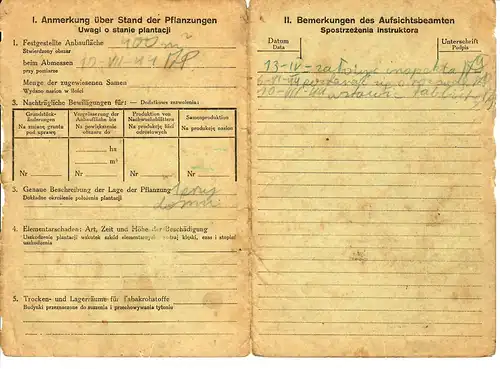 I. Anmerkung über Stand der Pflanzungen
Uwagi o stanie plantacji
1. Festgestellte Anbaufläche 400 m²
Stwierdzony obszar
beim Abmessen 10-VII-44
przy pomiarze
Menge der zugewiesenen Samen
Wydano nasion w ilości
3. Nachträgliche Bewilligungen für: — Dodatkowe zezwolenia:
Grundstück-
änderungen
Na zmianę gruntu
pod uprawę
Nr
Vergrösserung der
Anbaufläche bis
Na powiększenie
obszaru do
ha
m²
Nr
Produktion von
Nachwuchsblättern
Na produkcję liści
odrostowych
Nr
Samenproduktion
Na produkcję nasion
Nr
3. Genaue Beschreibung der Lage der Pflanzung przy
Dokładne określenie położenia plantacji domu
4. Elementarschaden: Art, Zeit und Höhe der Beschädigung
Uszkodzenie plantacji wskutek szkód elementarnych: rodzaj klęski, czas i stopień
uszkodzenia
5. Trocken- und Lagerräume für Tabakrohstoffe
Budynki przeznaczone do suszenia i przechowywania tytoniu
II. Bemerkungen des Aufsichtsbeamten
Spostrzeżenia instruktora
Datum
Data
Unterschrift
Podpis
13-IV- założył inspekta
6-VI-44
10-VII-44